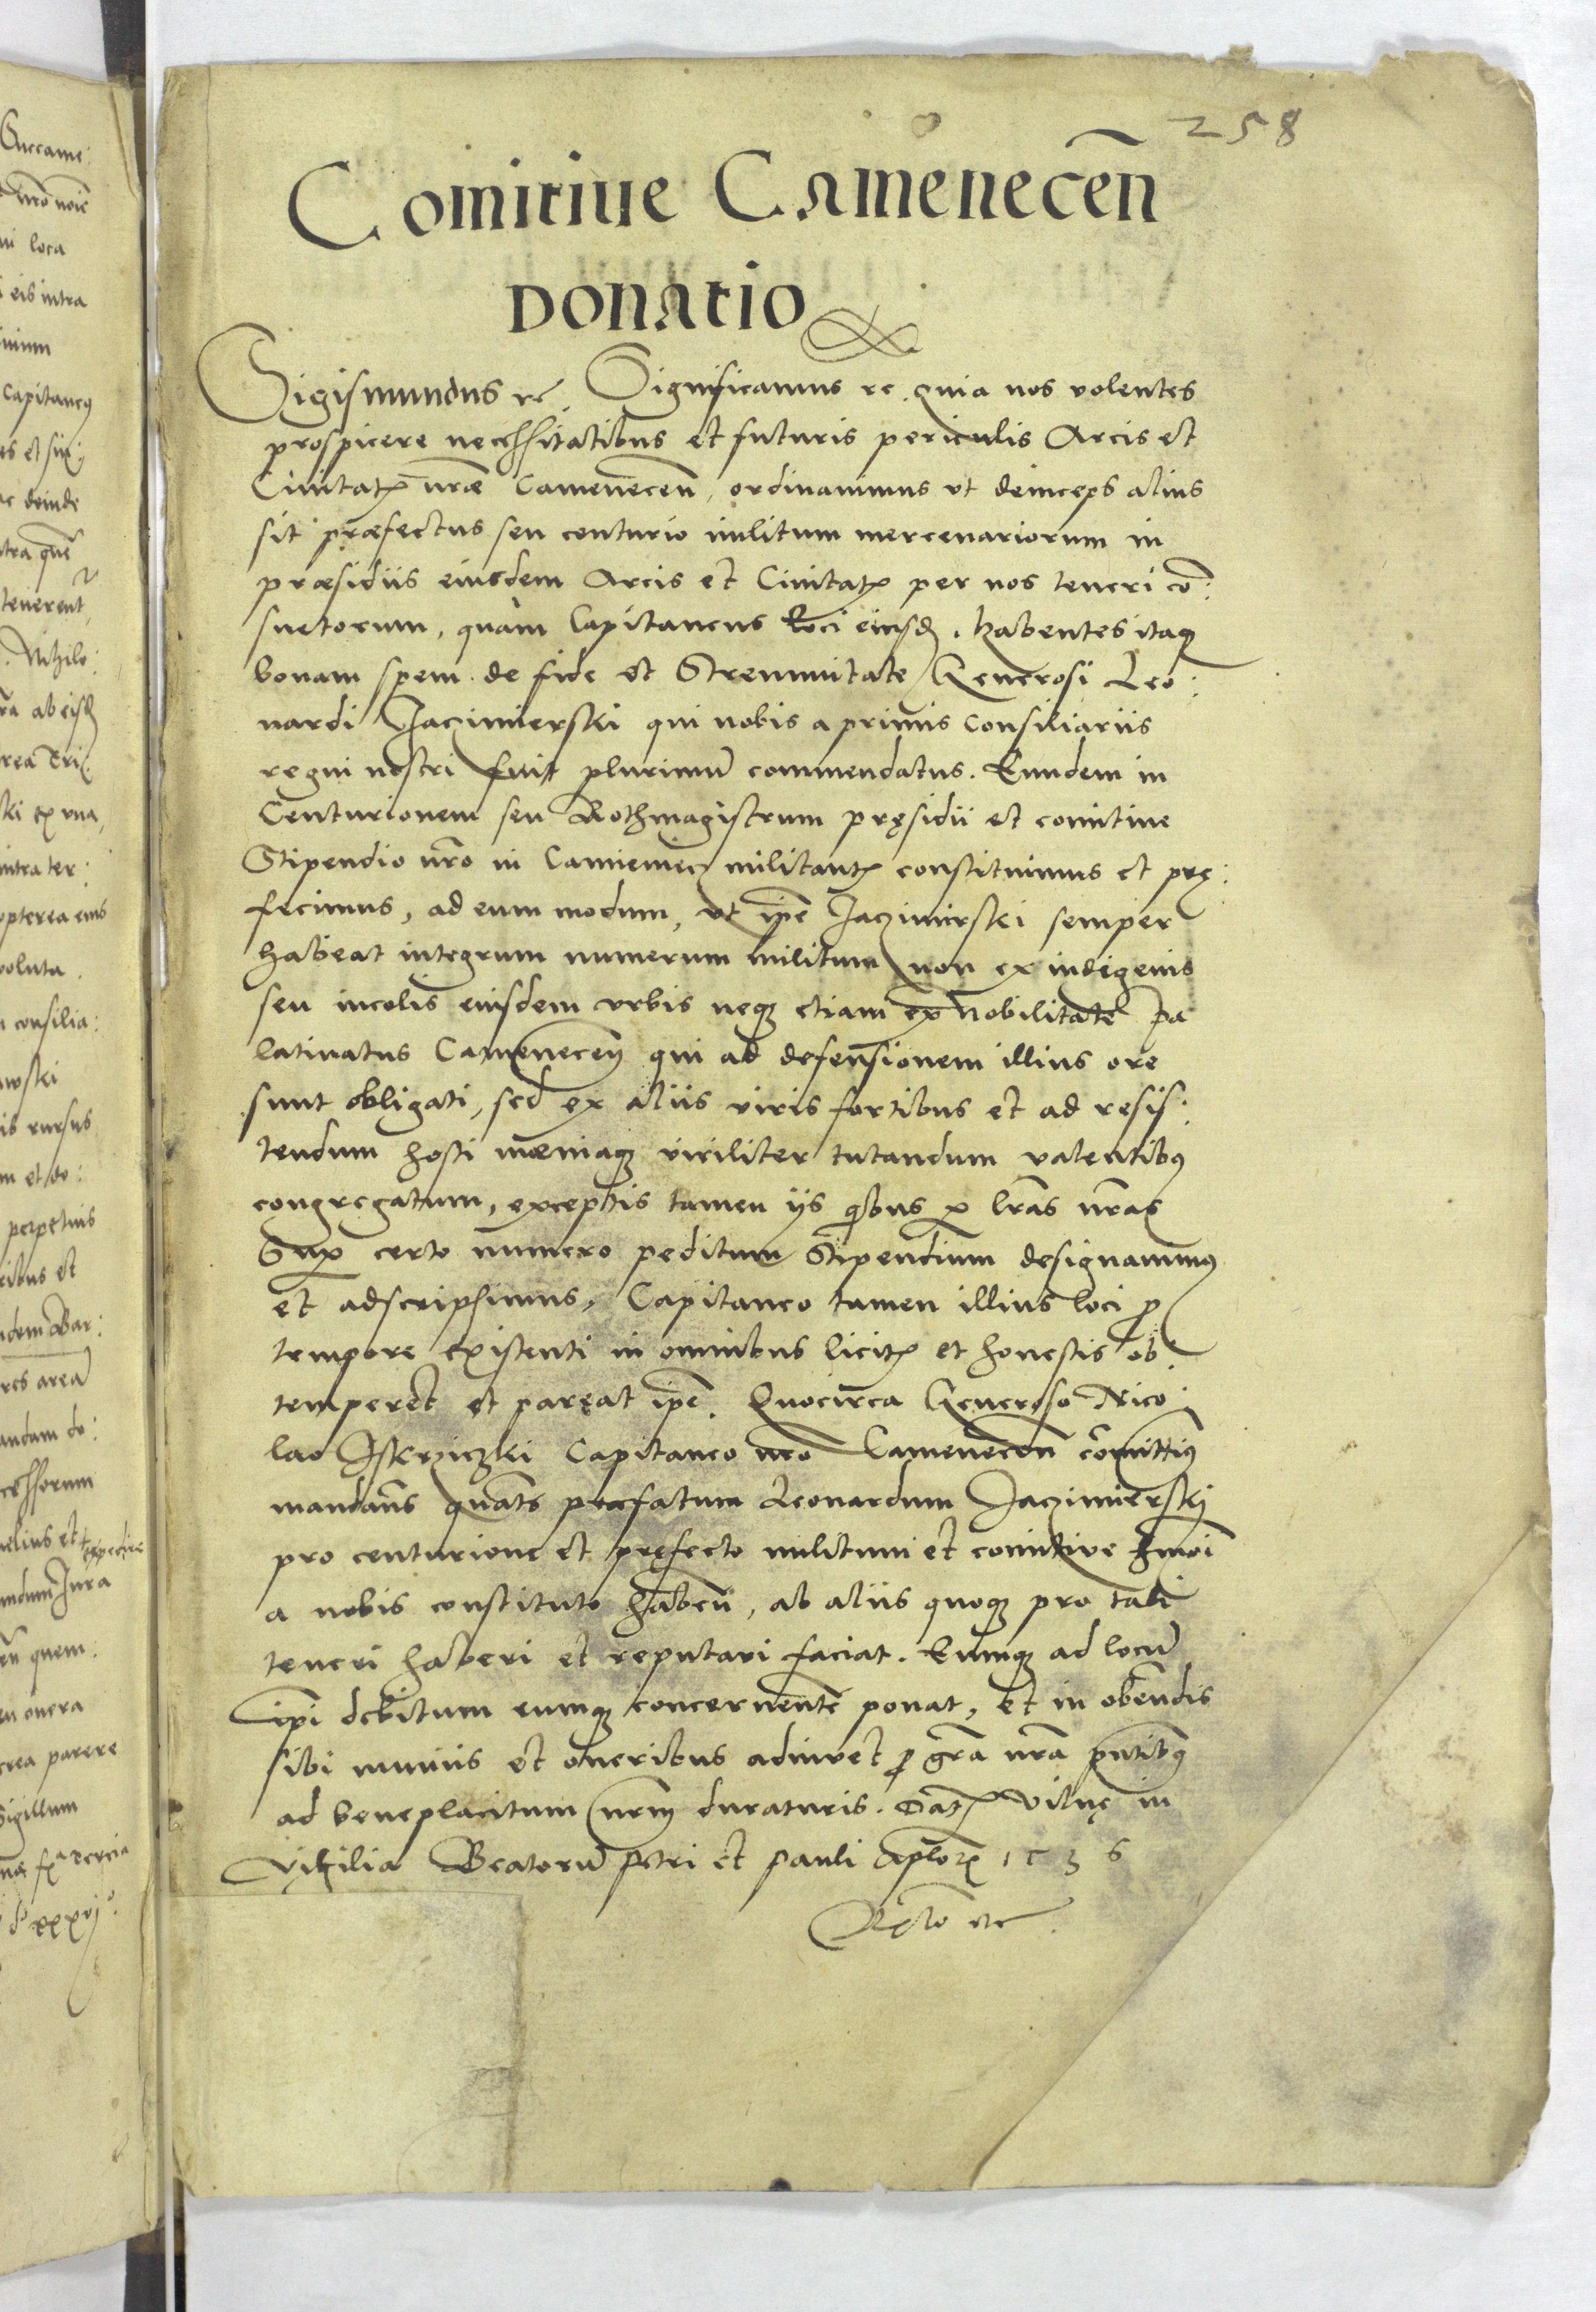 258
Comitiue Camenecen̄
Donatio
Sigismundus ꝛc. Significamus ꝛc. quia nos volentes
prospicere necessitatibus et futuris periculis Arcis et
Ciuitatꝭ nr̄æ Camenecen̄, ordinauimus vt deinceps alius
sit præfectus seu centurio militum mercenariorum in
præsidiis eiusdem Arcis et Ciuitatꝭ per nos teneri cō:
suetorum, quàm Capitaneus loci eiusd. habentes itaqꝫ
bonam spem de fide et Strenuitate Generosi Leo:
nardi Jaczimierski qui nobis a primis consiliariis
regni nostri fuit plurimū commendatus. Eundem in
Centurionem seu Rothmagistrum pręsidii et comitiue
Stipendio nr̄o in Camieniecz militantꝭ constituimus et pre:
fecimus, ad eum modum, vt ip̄e Jaczimirski semper
habeat integrum numerum militum non ex indigenis
seu incolis eiusdem vrbis neqꝫ etiam ex Nobilitate Pa
latinatus Camenecen̄ qui ad defensionem illius ore
sunt obligati, sed ex aliis viris fortibus et ad resis:
tendum hosti mœniaqꝫ viriliter tutandum valentibꝰ
congregatum, exceptis tamen iis qibus ꝑ lr̄as nr̄as
Suꝑ certo numero peditum Stipendium designauimꝰ
et adscripsimus, Capitaneo tamen illius loci ꝓ
tempore existenti in omnibus licitꝭ et honestis ob:
temperet et pareat ip̄e. Quocirca Generoso Nico:
lao Iskrziczki Capitaneo nr̄o Camenecen̄ cōmittimꝰ
mandan̄s quat̄s præfatum Leonardum Jaczimierski
pro centurione et pręfecto militum et comitiue hm̄oi
a nobis constituto habeat, ab aliis quoqꝫ pro tali
teneri haberi et reputari faciat. Eumqꝫ ad locū
ip̄i debitum eumqꝫ concernentē ponat, et in obeundis
sibi muniis et oneribus adiuuet ꝓ gr̄a nr̄a pn̄tibꝰ
ad beneplacitum nr̄m duraturis. Datꝭ Vilnę in
Vigilia Beatorū Petri et Pauli Ap̄lorꝫ 1536